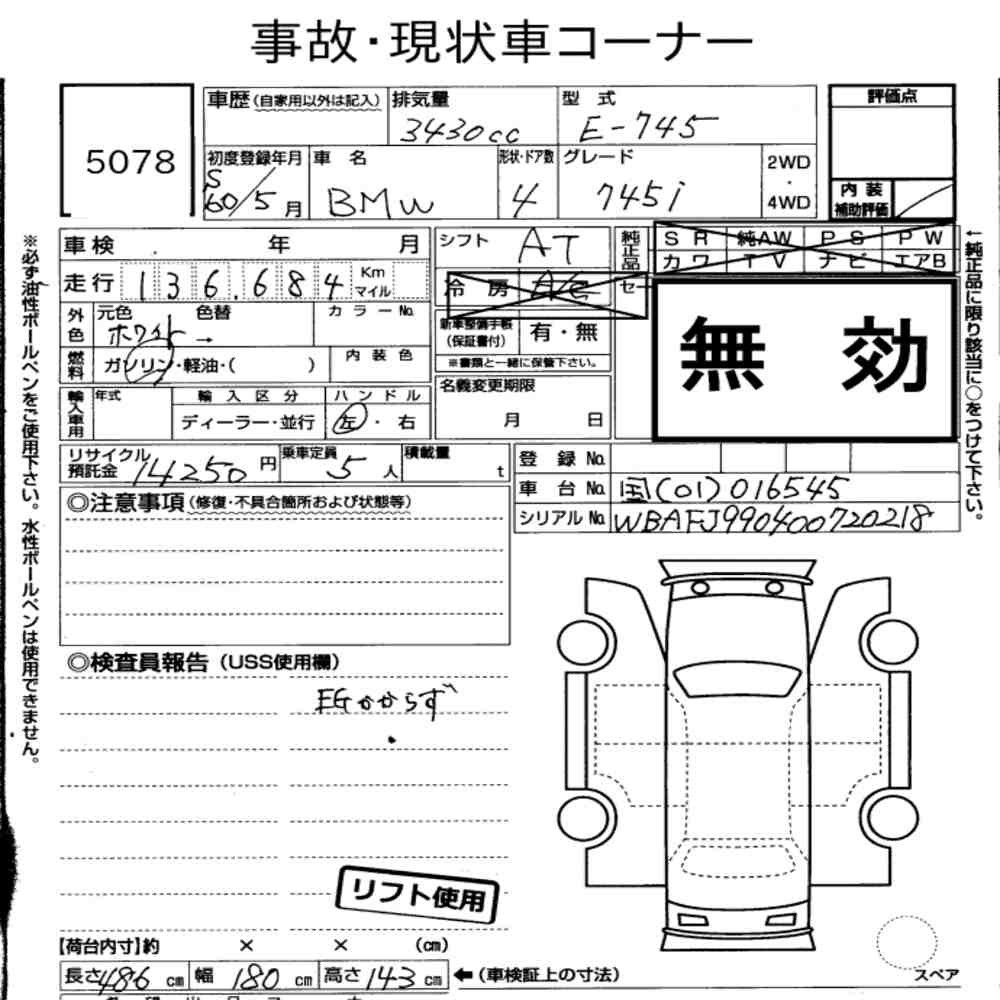 事故・現状車コーナー
5078
車歴（自家用以外は記入）
排気量
3430cc
型式
E-745
評価点
初度登録年月
S
60/5月
車名
BMW
形状・ドア数
4
グレード
745i
2WD
・
4WD
内装
補助評価
車検 年 月
シフト AT
純正品
SR 純AW PS PW
カワ TV ナビ エアB
走行 136.684 Km
マイル
冷房 A/C
セー
外色
元色 ホワイト 色替 → カラーNo.
新車整備手帳
（保証書付）
有・無
※書類と一緒に保管下さい。
無効
燃料
ガソリン・軽油・（ ）
内装色
輸入車用
年式
輸入区分
ディーラー・並行
ハンドル
左・右
名義変更期限
月 日
リサイクル
預託金 14250円
乗車定員 5人
積載量 t
登録No.
車台No. 国(01)016545
シリアルNo. WBAFJ990400720218
◎注意事項（修復・不具合箇所および状態等）
◎検査員報告（USS使用欄）
EGかからず
リフト使用
【荷台内寸】約 × × （cm）
長さ486cm 幅180cm 高さ143cm
←（車検証上の寸法）
スペア
※必ず油性ボールペンをご使用下さい。水性ボールペンは使用できません。
←純正品に限り該当に○をつけて下さい。